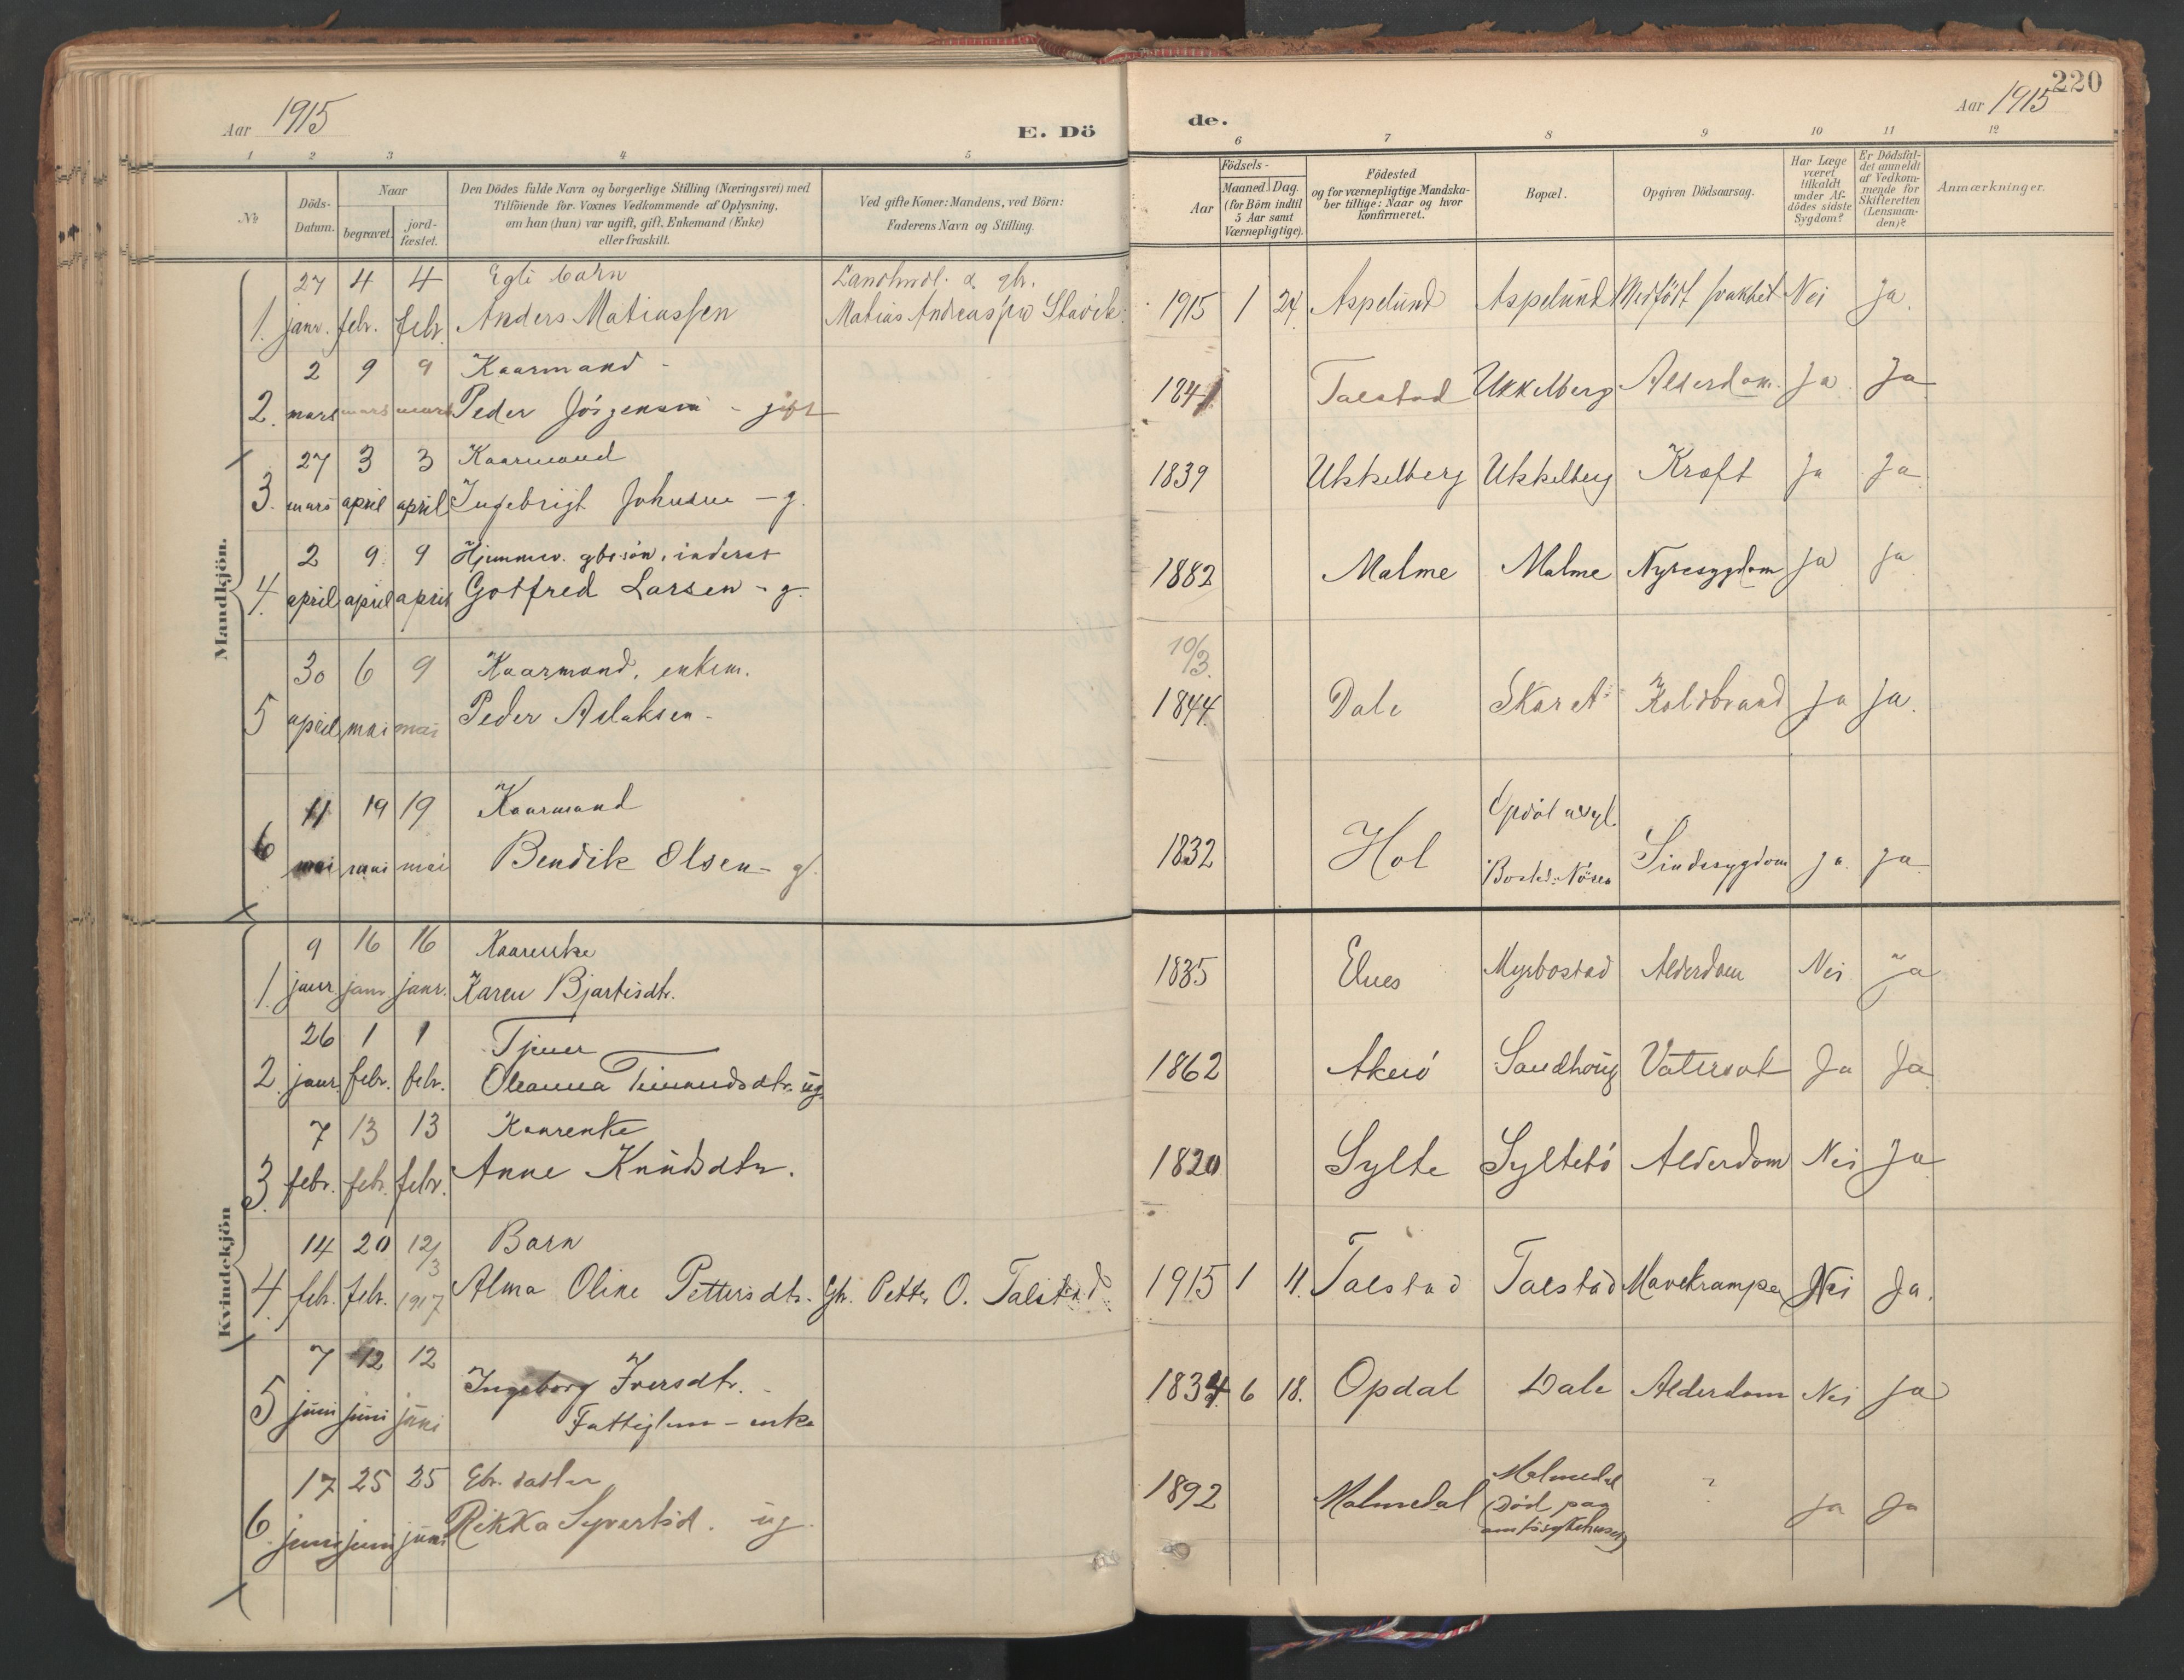 Aar 1915
E. Dö
de.
Aar 1915
220
1 2 3 4 5 6 7 8 9 10 11 12
No
Döds-Datum.
Naar
begravet.
jord-fæstet.
Den Dödes fulde Navn og borgerlige Stilling (Næringsvei) med
Tilföiende for Voxnes Vedkommende af Oplysning,
om han (hun) var ugift, gift, Enkemand (Enke)
eller fraskilt.
Ved gifte Koner: Mandens, ved Börn:
Faderens Navn og Stilling.
Födsels-
Aar
Maaned Dag
(for Börn indtil
5 Aar samt
Værnepligtige).
Födested
og for værnepligtige Mandska-
ber tillige: Naar og hvor
konfirmeret.
Bopæl.
Opgiven Dödsaarsag.
Har Læge
været
tilkaldt
under Af-
dödes sidste
Sygdom?
Er Dödsfal-
det anmeldt
af Vedkom-
mende for
Skifteretten
(Lensman-
den)?
Anmærkninger.
Mandkjön.
27 4 4 Egte barn
1. janr. febr. febr. Anders Matiassen Matias Andreassen Stavik 1915 1 24. Aspelund Aspelund Medfödt svakhet Nei ja.
2 9 9 Kaarmand -
2. mars mars mars Peder Jörgensen - gift 1841 Talstad Ukkelberg Alderdom. Ja Ja
27 3 3 Kaarmand
3. mars april april Ingebrigt Johnsen - g. 1839 Ukkelberg Ukkelberg Kræft Ja Ja
2 9. 9 Hjemmev. gbr.sön, inderst
4. april april april Gotfred Larsen - g. 1882 Malme Malme Nyresygdom Ja Ja
30 6 9 Kaarmand, enkem. 10/3.
5 april mai mai Peder Aslaksen - 1844. Dale Skaret Koldbrand Ja Ja.
11 19 19 Kaarmand Opdöl asyl
6 mai mai mai Bendik Olsen - g. 1832 Hol Bosted: Nösen Sindssygdom ja. ja.
Kvindekjön
9 16 16 Kaarenke
1. janr. janr. janr. Karen Bjartesdtr. 1835 Elnes Myrbostad Alderdom Nei Ja
26 1 1 Tjener
2. janr. febr. febr. Oleanna Timandsdtr. ug. 1862 Akerö Sandhoug Vatersot Ja Ja
7 13 13 Kaarenke
3. febr. febr. febr. Anne Knudsdtr. 1820 Sylte Syltebö Alderdom Nei Ja
14 20 12/3 Barn
4. febr. febr. 1917 Alma Oline Pettersdtr. Gbr. Petter O. Talstad 1915 1 11. Talstad Talstad Mavekramper Nei Ja.
7 12 12 Ingeborg Iversdtr. -
5 juni juni juni Fattiglem - enke 1834 6 18. Opdal Dale Alderdom Nei Ja
17 25 25 Gbr. datter Malmedal
6. juni juni juni Rikka Syvertsd. ug. 1892 Malmedal (Död paa ? Ja Ja
amtssykehuset)